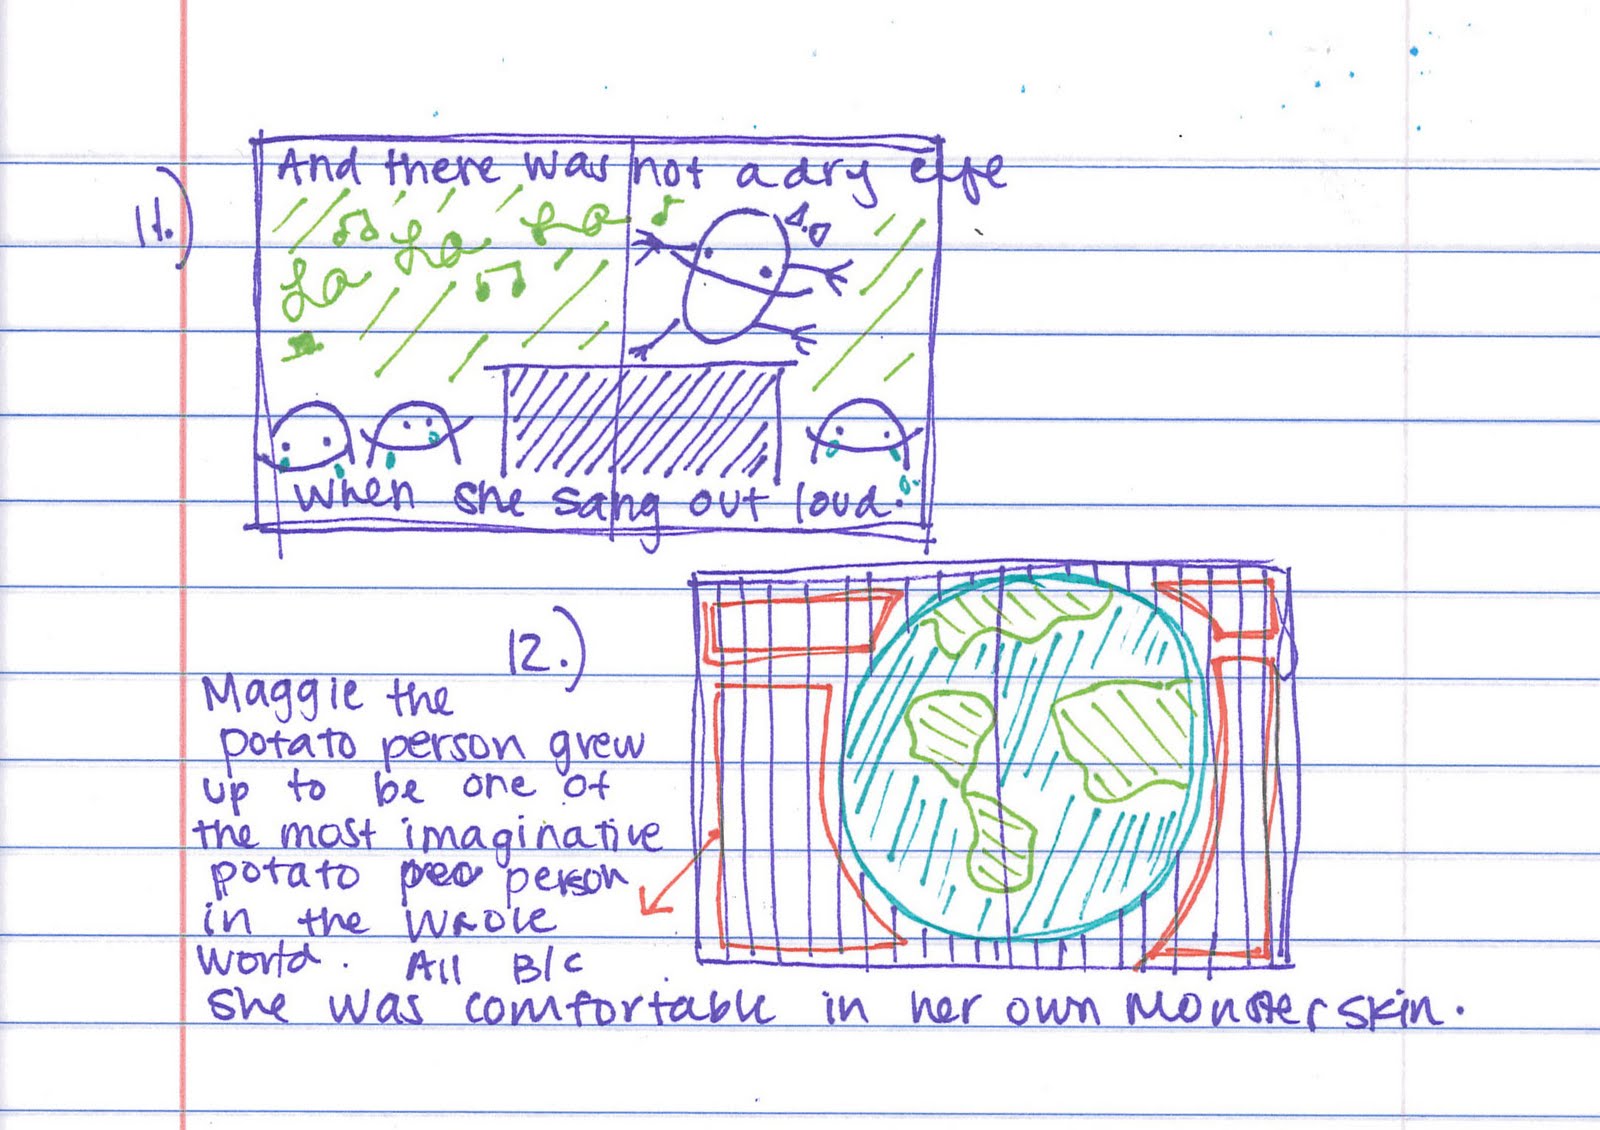 11.)
And there was not a dry eye
La La La
when she sang out loud.
12.)
Maggie the
potato person grew
up to be one of
the most imaginative
potato peo person
in the whole
world. All B/C
she was comfortable in her own Monster skin.